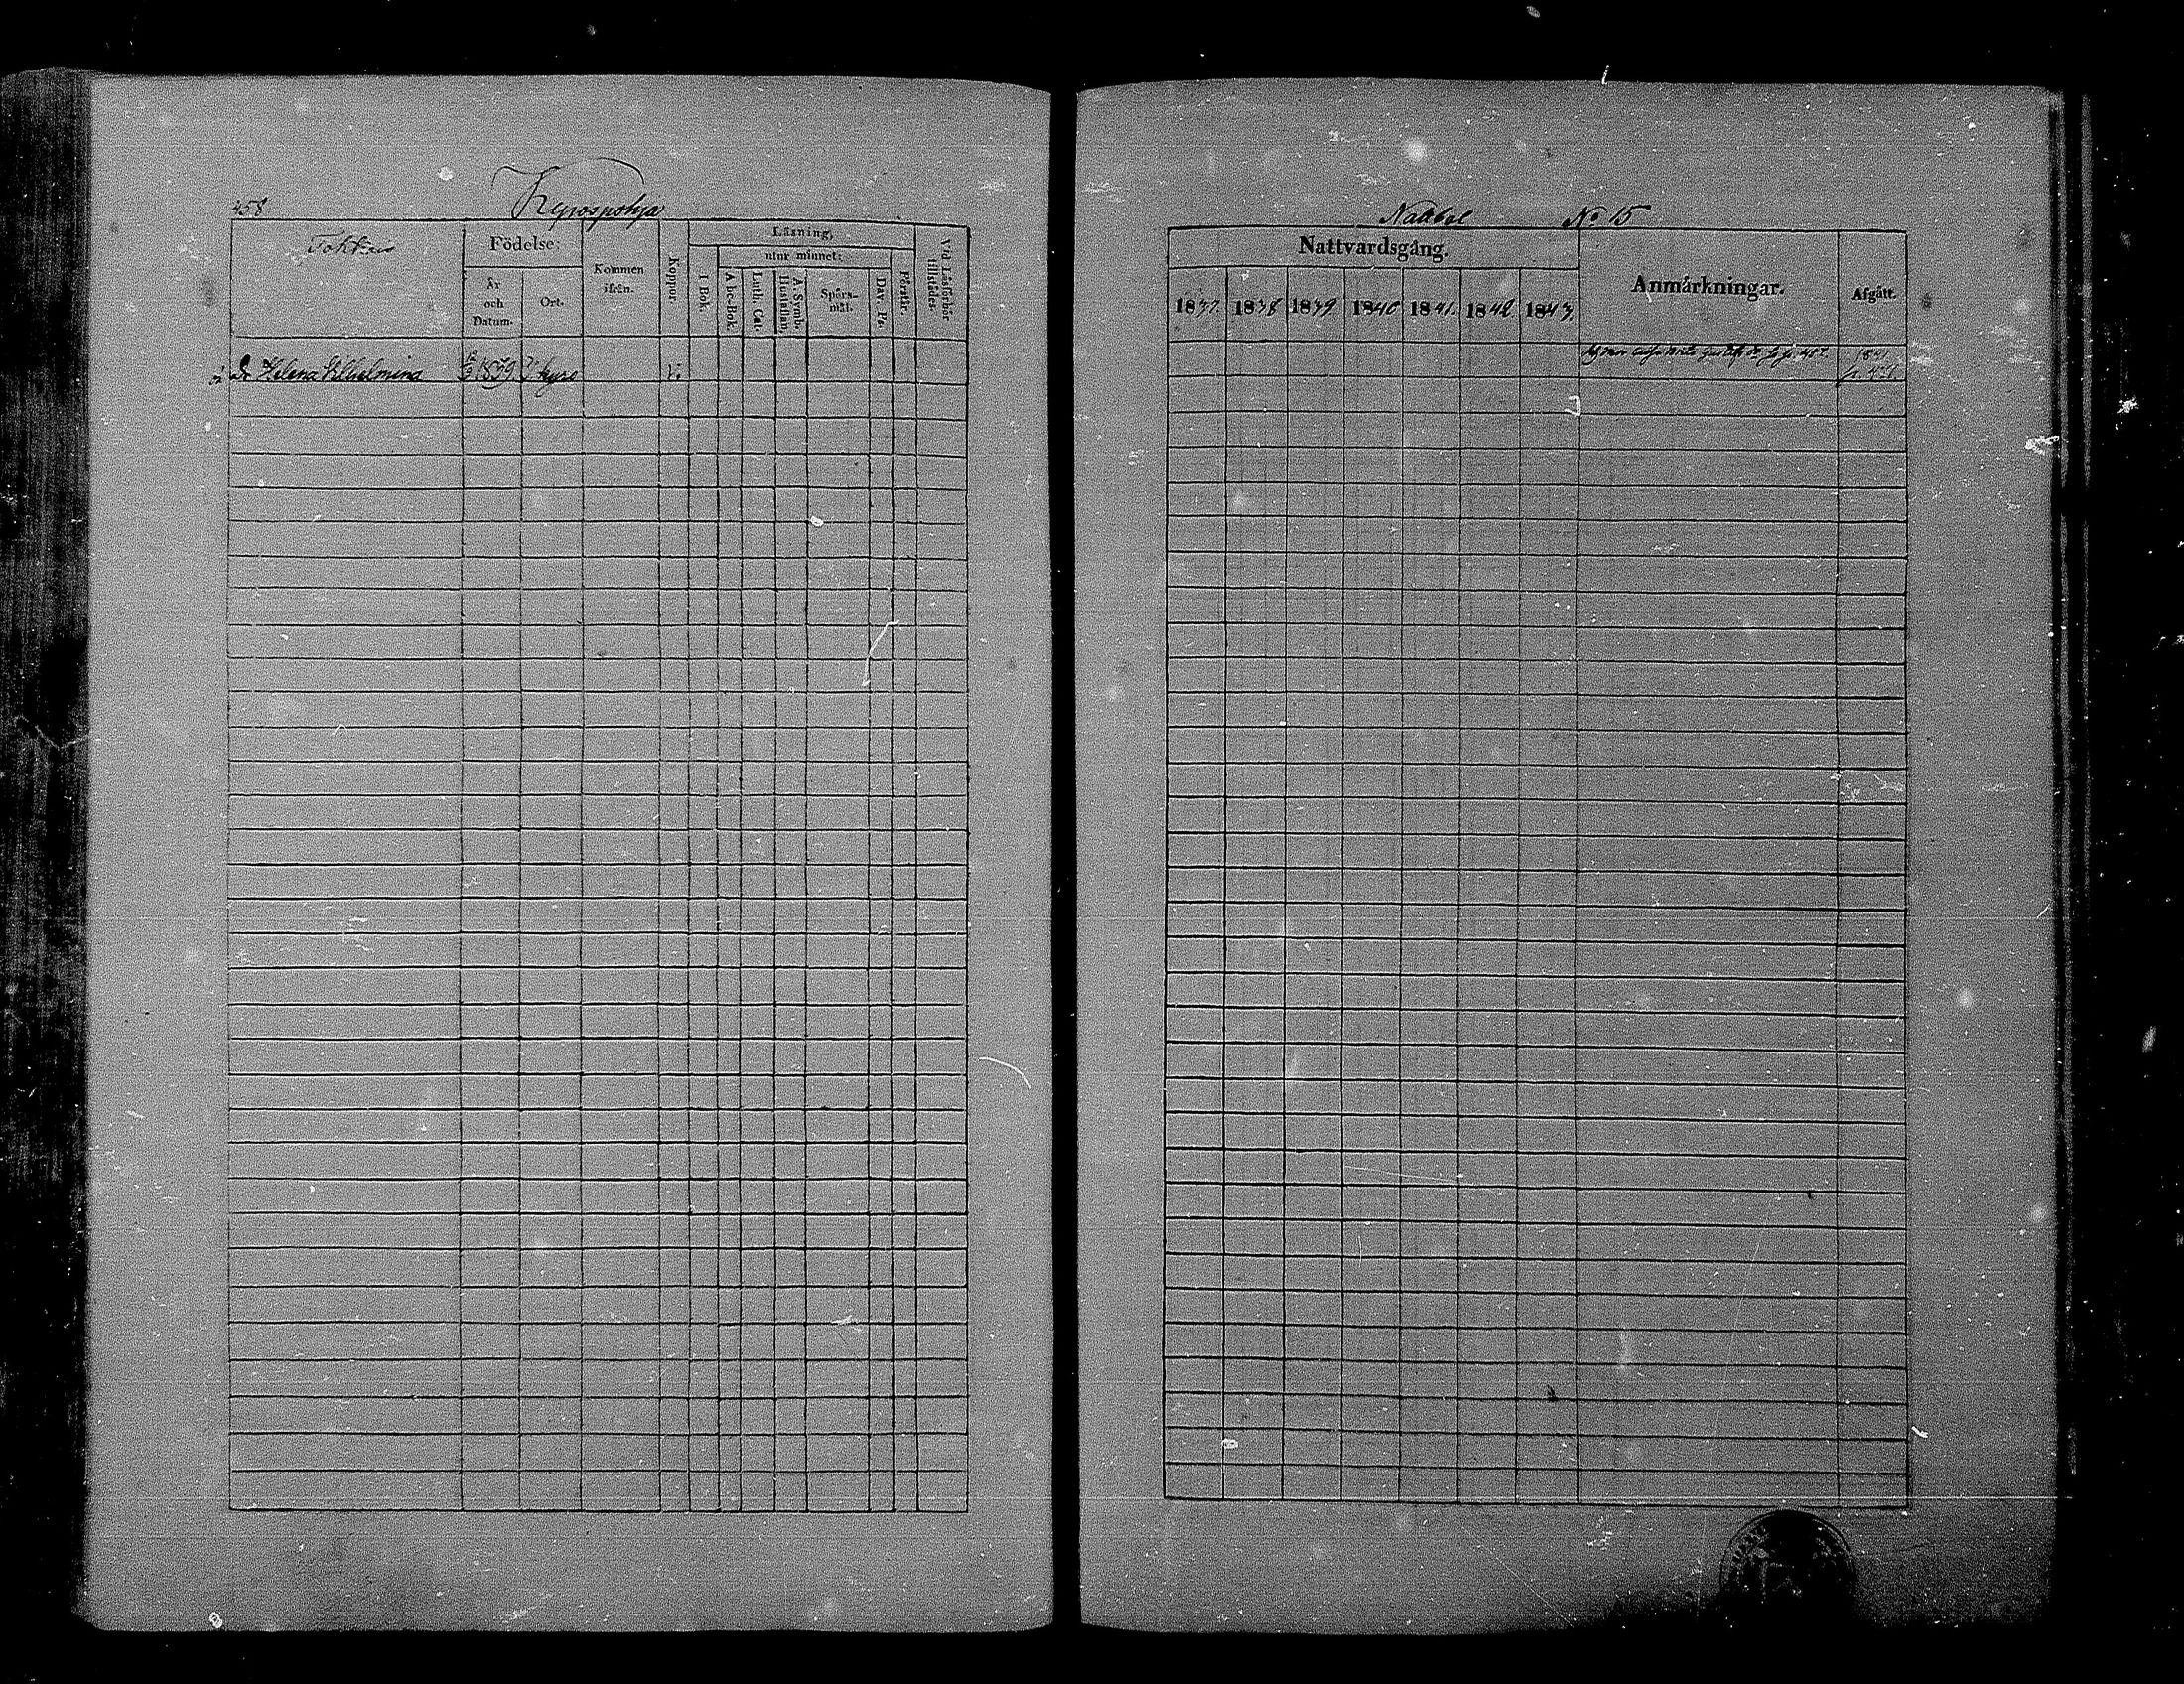 458 Kyrospohja
Födelse:
Kommen ifrån.
Koppor.
Läsning,
utur minnet:
I Bok.
Abc-Bok.
Luth. Cat.
A. Symb. Hustaflan.
Spörs-mål.
Dav. Ps.
Förstår.
Vid Läsförhör tillstädes.
År och Datum.
Ort.
Dr Helena Vilhelmina 1839 Kyro v.
No 15
Nattvardsgång.
Anmärkningar.
Afgått.
1837. 1838 1839 1840 1841. 1842 1843.
1841